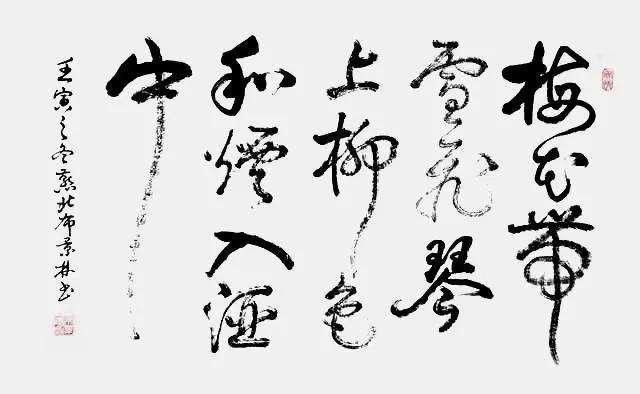 梅花帶
雪飛琴
上柳色
和煙入酒
中
壬寅之冬燕北布景林书